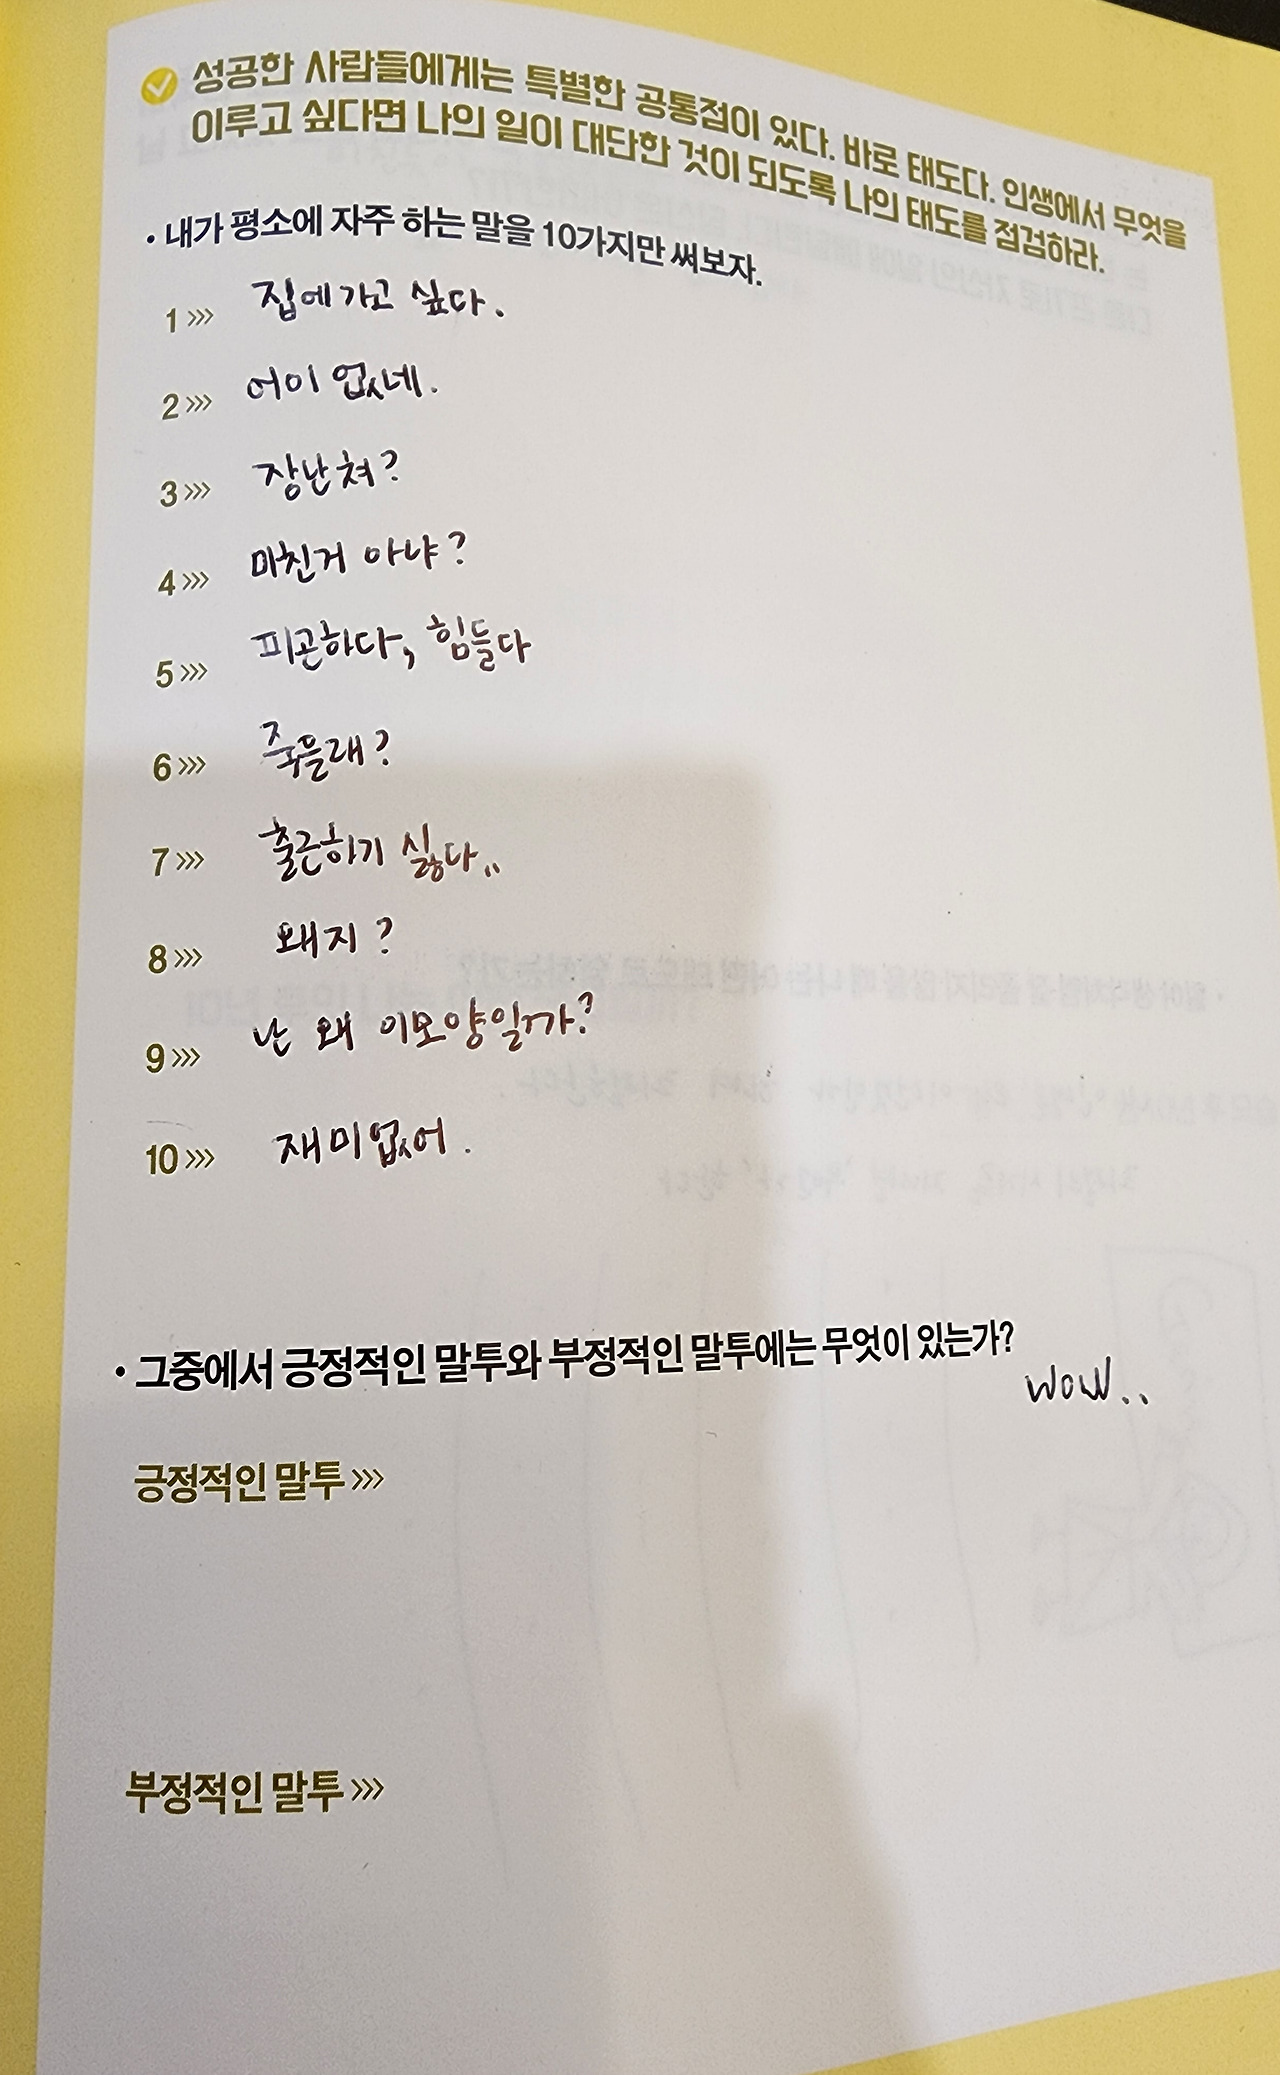 성공한 사람들에게는 특별한 공통점이 있다. 바로 태도다. 인생에서 무엇을
이루고 싶다면 나의 일이 대단한 것이 되도록 나의 태도를 점검하라.
• 내가 평소에 자주 하는 말을 10가지만 써보자.
1 >>> 집에가고 싶다.
2 >>> 어이 없네.
3 >>> 장난쳐?
4 >>> 미친거 아냐?
5 >>> 피곤하다, 힘들다
6 >>> 죽을래?
7 >>> 출근하기 싫다..
8 >>> 왜지?
9 >>> 난 왜 이모양일까?
10 >>> 재미없어.
• 그중에서 긍정적인 말투와 부정적인 말투에는 무엇이 있는가?
WOW..
긍정적인 말투 >>>
부정적인 말투 >>>